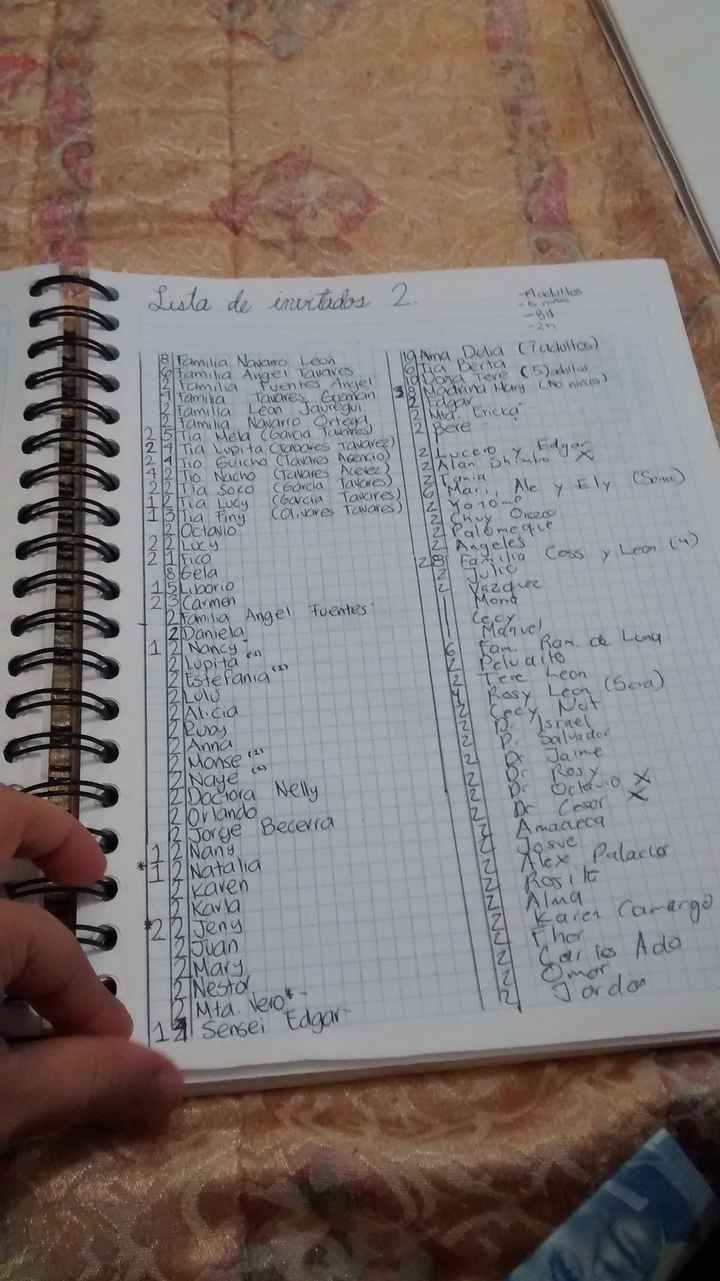 Lista de invitados 2.
8 Familia Navarro Leon
6 Familia Angel Tavares
2 Familia Fuentes Angel
Familia Tavares Guzman
2 Familia Leon Jauregui
2 Familia Navarro Ortega
2 5 Tia Mela (Garcia Tavares)
2 4 Tia Lupita (Tavares Tavarez)
2 4 Tio Guicho (Tavares Asencio)
2 Tio Nacho (Tavares Acevez)
2 2 Tia Soco (Garcia Tavares)
1 2 Tia Lucy (Garcia Tavares)
1 3 Tia Finy (Olivares Tavares)
2 Octavio
2 2 Lucy
2 1 Fico
8 Gela
1 5 Liborio
2 3 Carmen
2 Familia Angel Fuentes
2 Daniela
1 2 Nancy
2 Lupita
2 Estefania
2 Lulu
2 Alicia
2 Ruby
2 Anna
2 Monse
2 Naye
2 Doctora Nelly
2 Orlando
2 Jorge Becerra
1 2 Nany
* 1 2 Natalia
2 Karen
2 Karla
* 2 2 Jeny
2 Juan
2 Mary
2 Nestor
2 Mta. Vero*
1 Sensei Edgar
-5 niños
19 Ama Delia (7 adultos)
6 Tia Berta
Doña Tere (5) adultos
8 Madrina Mary (No niños)
Edgar
2 Mta. Ericka
2 Bere
2 Lucero y Edgar
2 Alan X
2 Tania
6 Mari, Ale y Ely
2
2 Chuy Orozco
2 Palomeque
2 Angeles
2 8 Familia Coss y Leon (4)
2 Julio
2 Vazquez
Mona
Cecy
Manuel
6 Fam. Ram. de Luna
2 Peludito
2 Tere Leon
4 Rosy Leon
2 Cecy Not
2 Dr. Israel
2 Dr. Salvador
2 Dr Jaime
2 Dr. Rosy
2 Dr. Octavio X
2 Dr Cesar X
2 Amaneca
2 Josue
2 Alex Palacios
2
2 Alma
2 Karen Camargo
2 Thor
2 Carlos Ado
2 Omar
2 Jordan